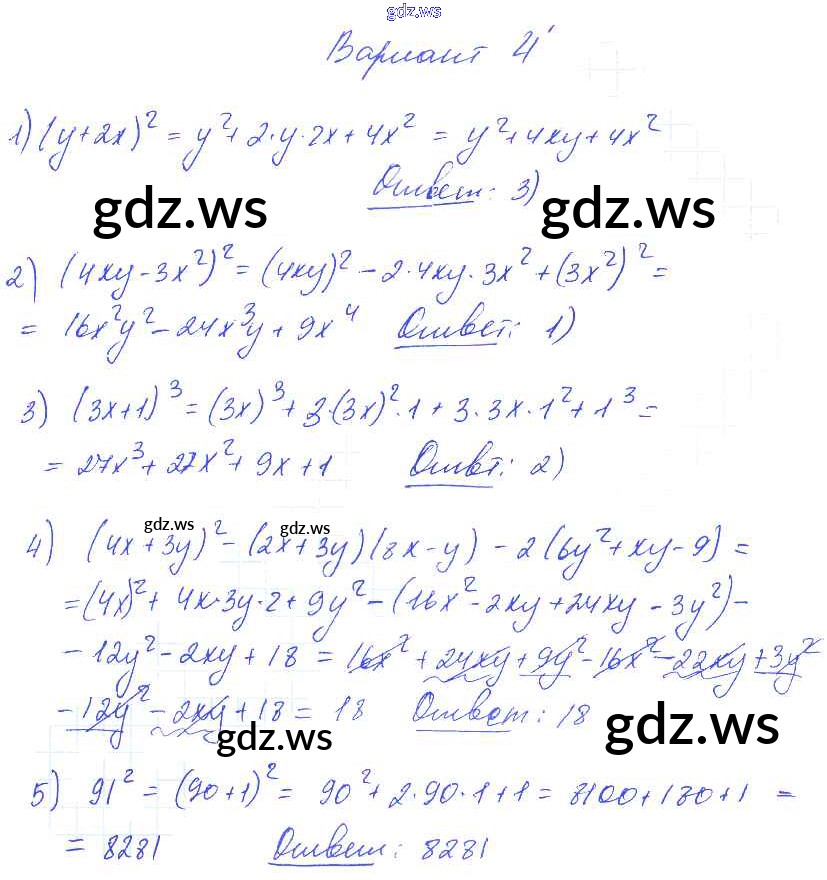 gdz.ws
Вариант 4
1) (y+2x)² = y²+2·y·2x+4x² = y²+4xy+4x²
Ответ: 3)
gdz.ws gdz.ws
2) (4xy-3x²)² = (4xy)² - 2·4xy·3x² + (3x²)² =
= 16x²y² - 24x³y + 9x⁴ Ответ: 1)
3) (3x+1)³ = (3x)³ + 3·(3x)²·1 + 3·3x·1² + 1³ =
= 27x³ + 27x² + 9x + 1 Ответ: 2)
gdz.ws gdz.ws
4) (4x+3y)² - (2x+3y)(8x-y) - 2(6y²+xy-9) =
= (4x)² + 4x·3y·2 + 9y² - (16x² - 2xy + 24xy - 3y²) -
- 12y² - 2xy + 18 = 16x² + 24xy + 9y² - 16x² - 22xy + 3y²
- 12y² - 2xy + 18 = 18 Ответ: 18
gdz.ws gdz.ws
5) 91² = (90+1)² = 90² + 2·90·1 + 1 = 8100 + 180 + 1 =
= 8281 Ответ: 8281